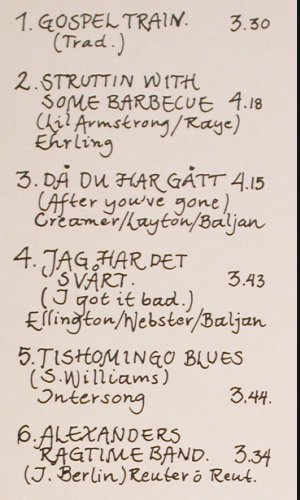 1. GOSPEL TRAIN. 3.30
(Trad.)
2. STRUTTIN WITH
SOME BARBECUE 4.18
(Lil Armstrong/Raye)
Ehrling
3. DÅ DU HAR GÅTT 4.15
(After you've gone)
Creamer/Layton/Baljan
4. JAG HAR DET
SVÅRT. 3.43
(I got it bad.)
Ellington/Webster/Baljan
5. TISHOMINGO BLUES
(S. Williams)
Intersong 3.44.
6. ALEXANDERS
RAGTIME BAND. 3.34
(J. Berlin) Reuter ö Reut.